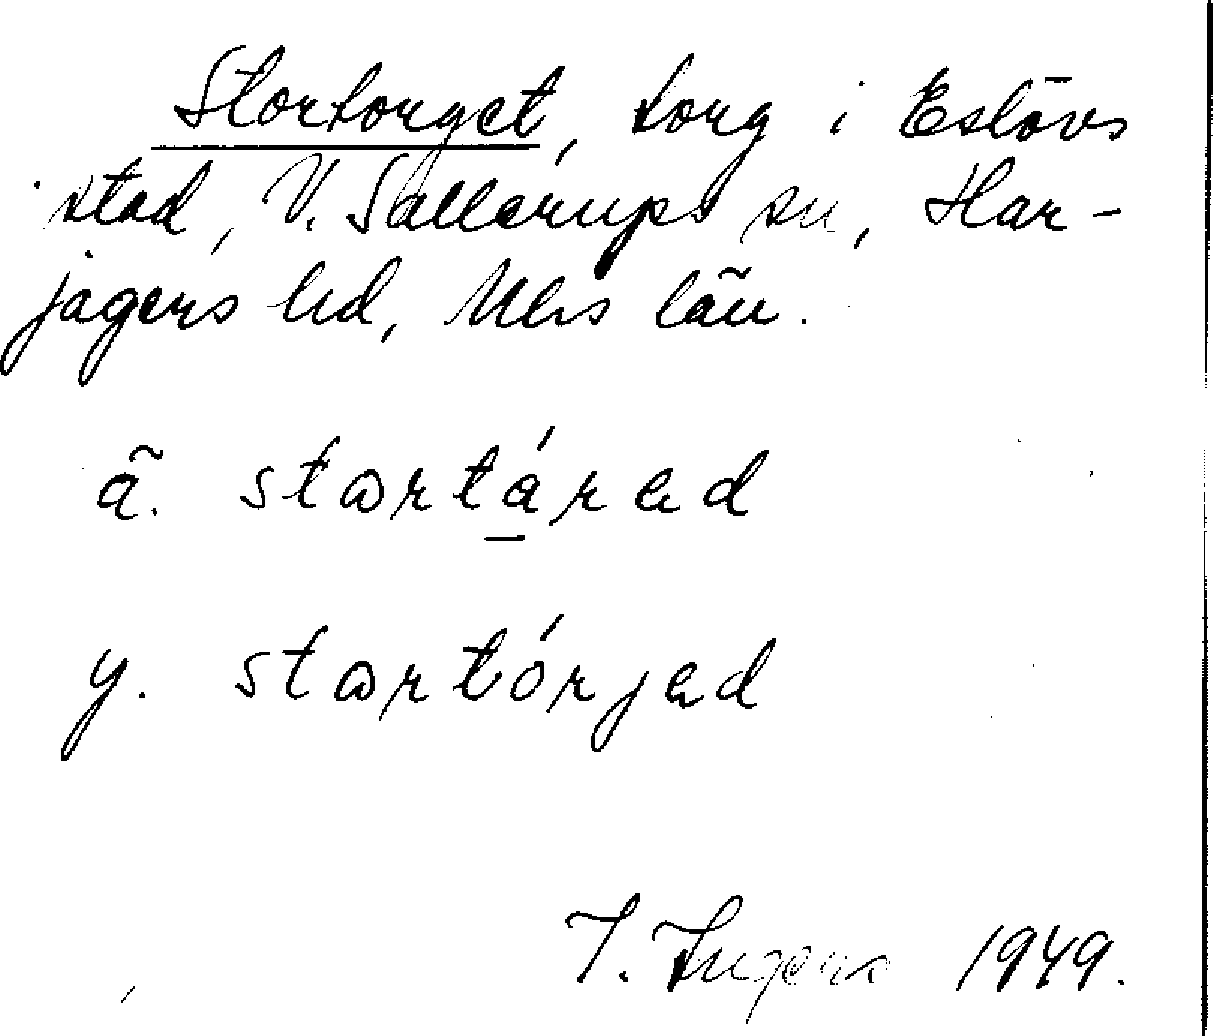 Stortorget, torg i Eslövs
stad, V. Sallerups sn, Har-
jagers hd, Mlhs län.
ä. stωrtáræd
y. stωrtórjæd
I. Ingers 1949.